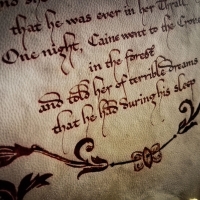 that he was ever in her Thrall
One night, Caine went to the Crone
in the forest
and told her of terrible dreams
that he had during his sleep